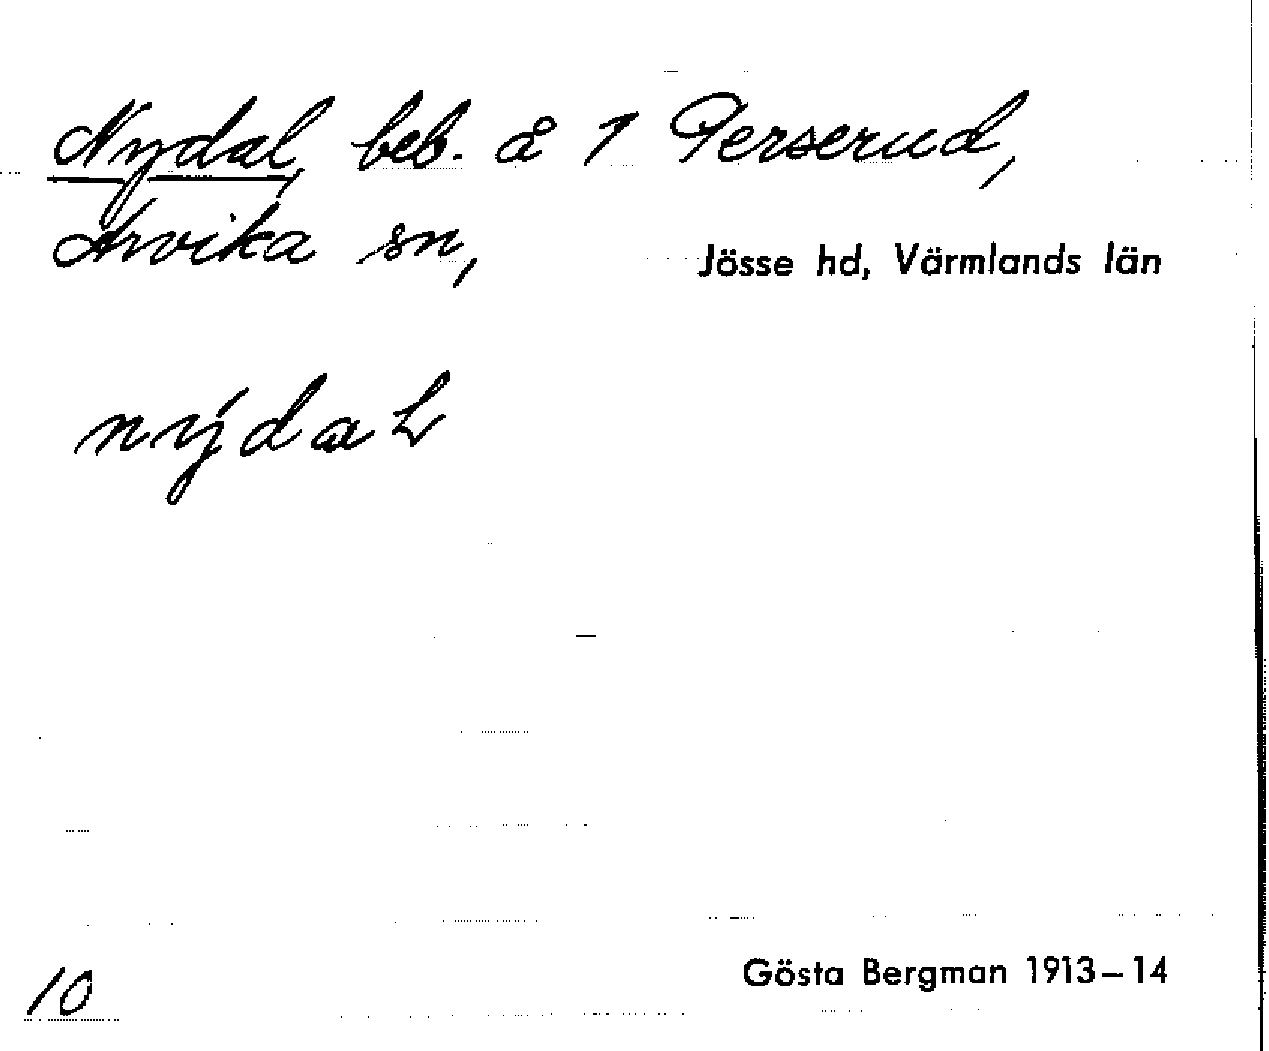 Nydal, beb. å 1 Perserud,
Arvika sn,
Jösse hd, Värmlands län
nýdaL
10
Gösta Bergman 1913–14